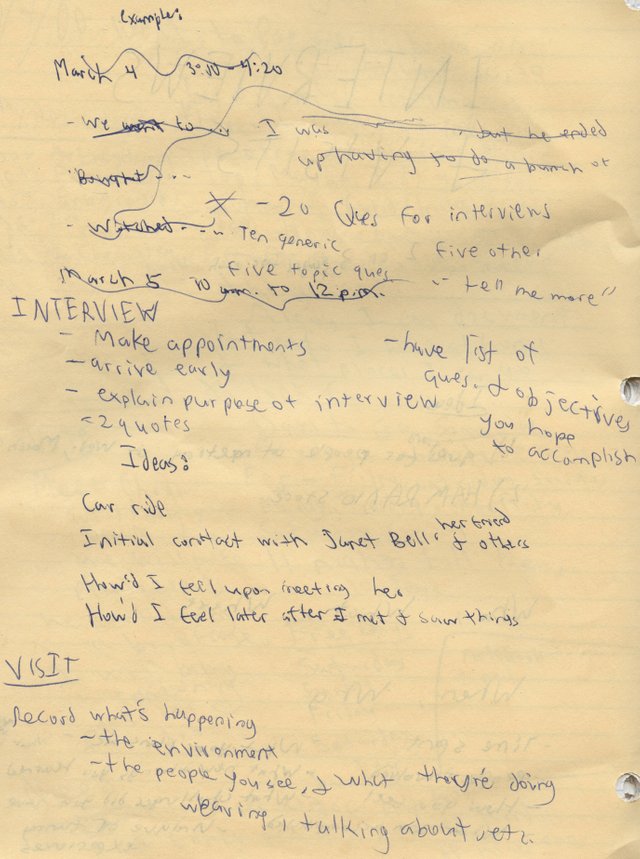 example:
March 4 3:00 - 4:20
- We want to... I was
- but he ended
up having to do a bunch of
Bought...
- Watched...
- 20 Ques for interviews
Ten generic
Five other
Five topic ques
March 5 10 a.m. to 12 p.m.
- tell me more"
INTERVIEW
- Make appointments
- have list of
- arrive early
ques. & objectives
- explain purpose of interview
you hope
= 2 quotes
to accomplish
Ideas:
Car ride
her friend
Initial contact with Janet Bell & others
How'd I feel upon meeting her
How'd I feel later after I met & saw things
VISIT
Record what's happening
- the environment
- the people you see, & what they're doing
wearing, talking about, etc.